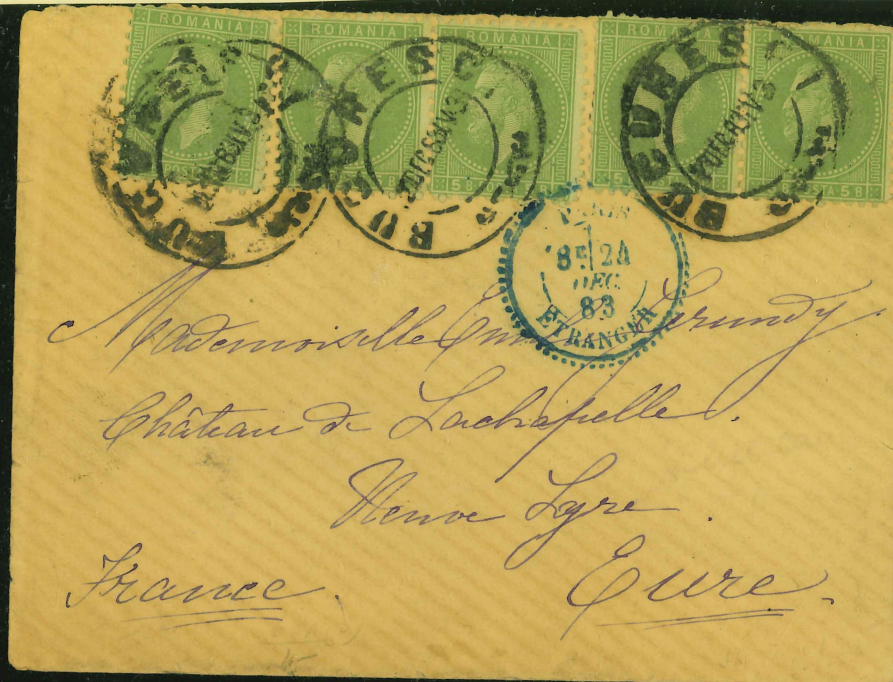 ROMANIA ROMANIA ROMANIA ROMANIA ROMANIA
BUCURESCI BUCURESCI BUCURESCI
PARIS
24
DEC
83
ETRANGER
Mademoiselle Grundy
Château de Lachapelle.
Neuve Lyre.
France. Eure.